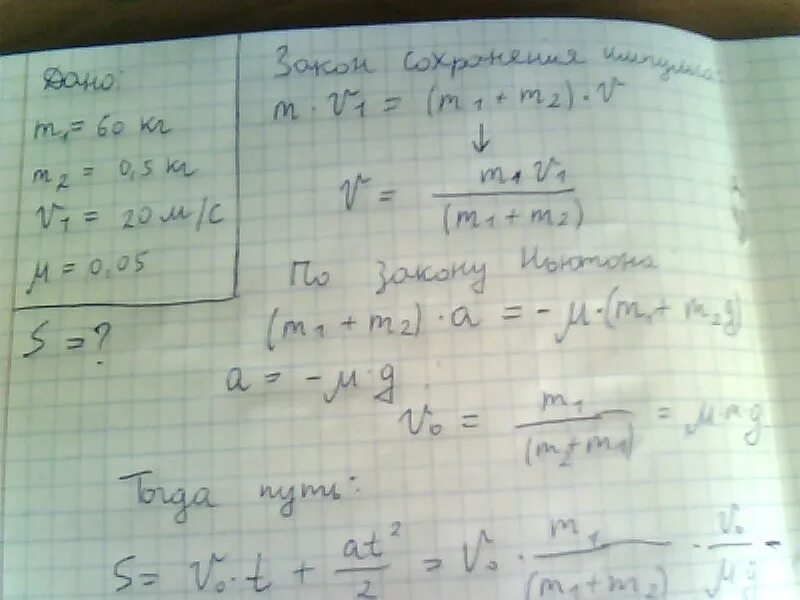 Дано:
m₁ = 60 кг
m₂ = 0,5 кг
v₁ = 20 м/с
μ = 0,05
S = ?
Закон сохранения импульса:
m · v₁ = (m₁ + m₂) · v
↓
v = m₁ v₁ / (m₁ + m₂)
По закону Ньютона
(m₁ + m₂) · a = - μ · (m₁ + m₂ g)
a = - μ · g
v₀ = m₁ / (m₂ + m₁) = μ · g
Тогда путь:
S = v₀ · t + at² / 2 = v₀ · m₁ / (m₁ + m₂) · v₀ / μg -